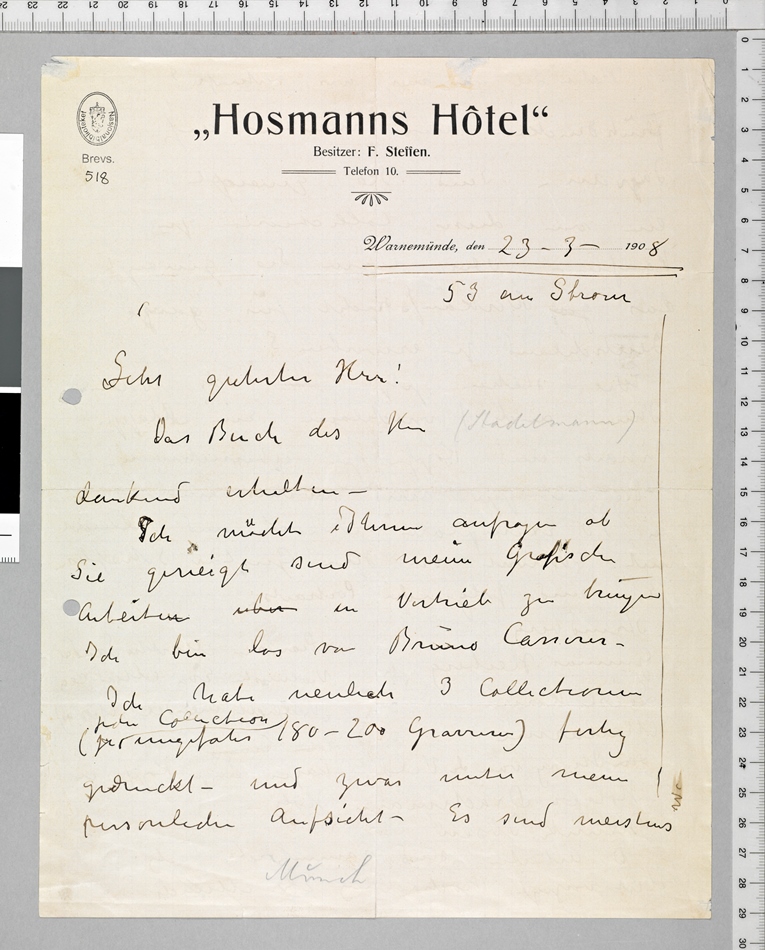 „Hosmanns Hôtel“
Besitzer: F. Steffen.
Telefon 10.
Nasjonalbiblioteket
Brevs.
518
Warnemünde, den 23 – 3 – 1908
53 am Strom
Sehr geehrter Herr!
Das Buch des Herr (Stadelmann)
dankend erhalten –
Ich möcht Ihnen anfragen ob
Sie geneigt sind meine Grafische
Arbeiten uber in Vertrieb zu bringen
Ich bin los von Bruno Cassirer –
Ich habe neulich 3 Collectionen
jede Collection
(ungefähr 180 – 200 Gravuren) fertig
gedruckt – und zwar unter meine
personliche Aufsicht – Es sind meistens
Munch